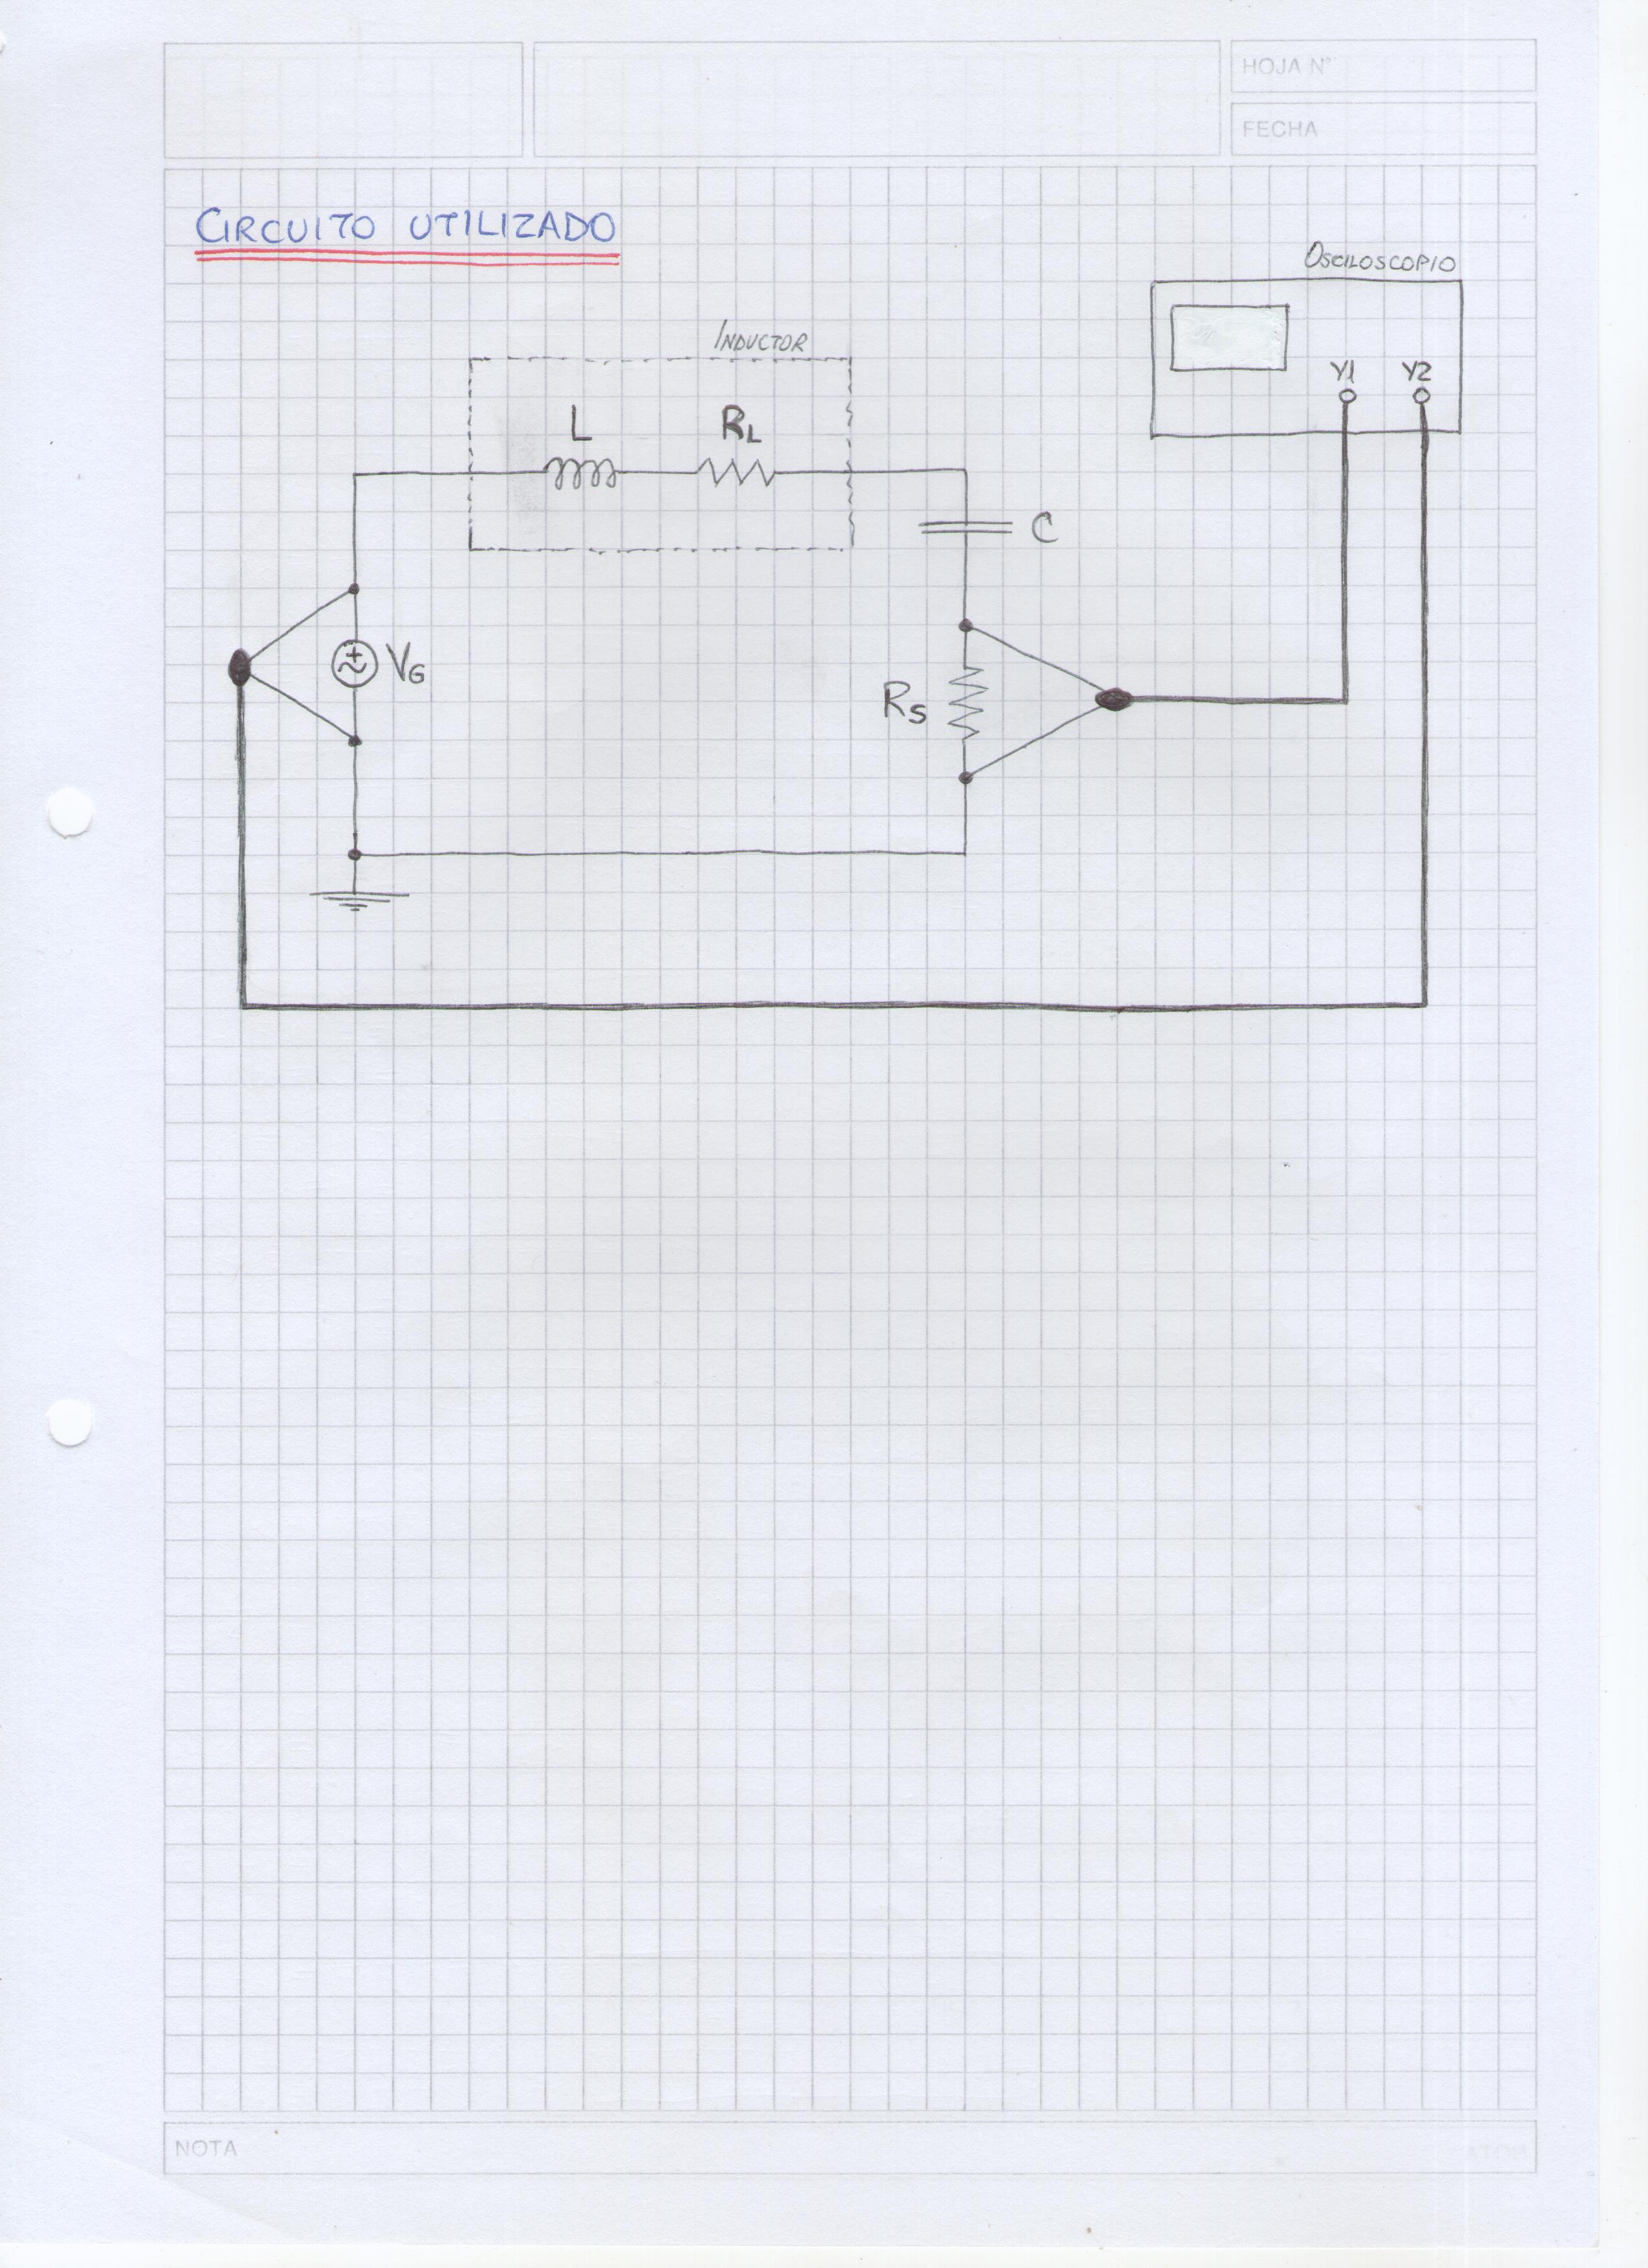 HOJA N°
FECHA
CIRCUITO UTILIZADO
OSCILOSCOPIO
INDUCTOR
Y1 Y2
L RL
C
VG
RS
NOTA